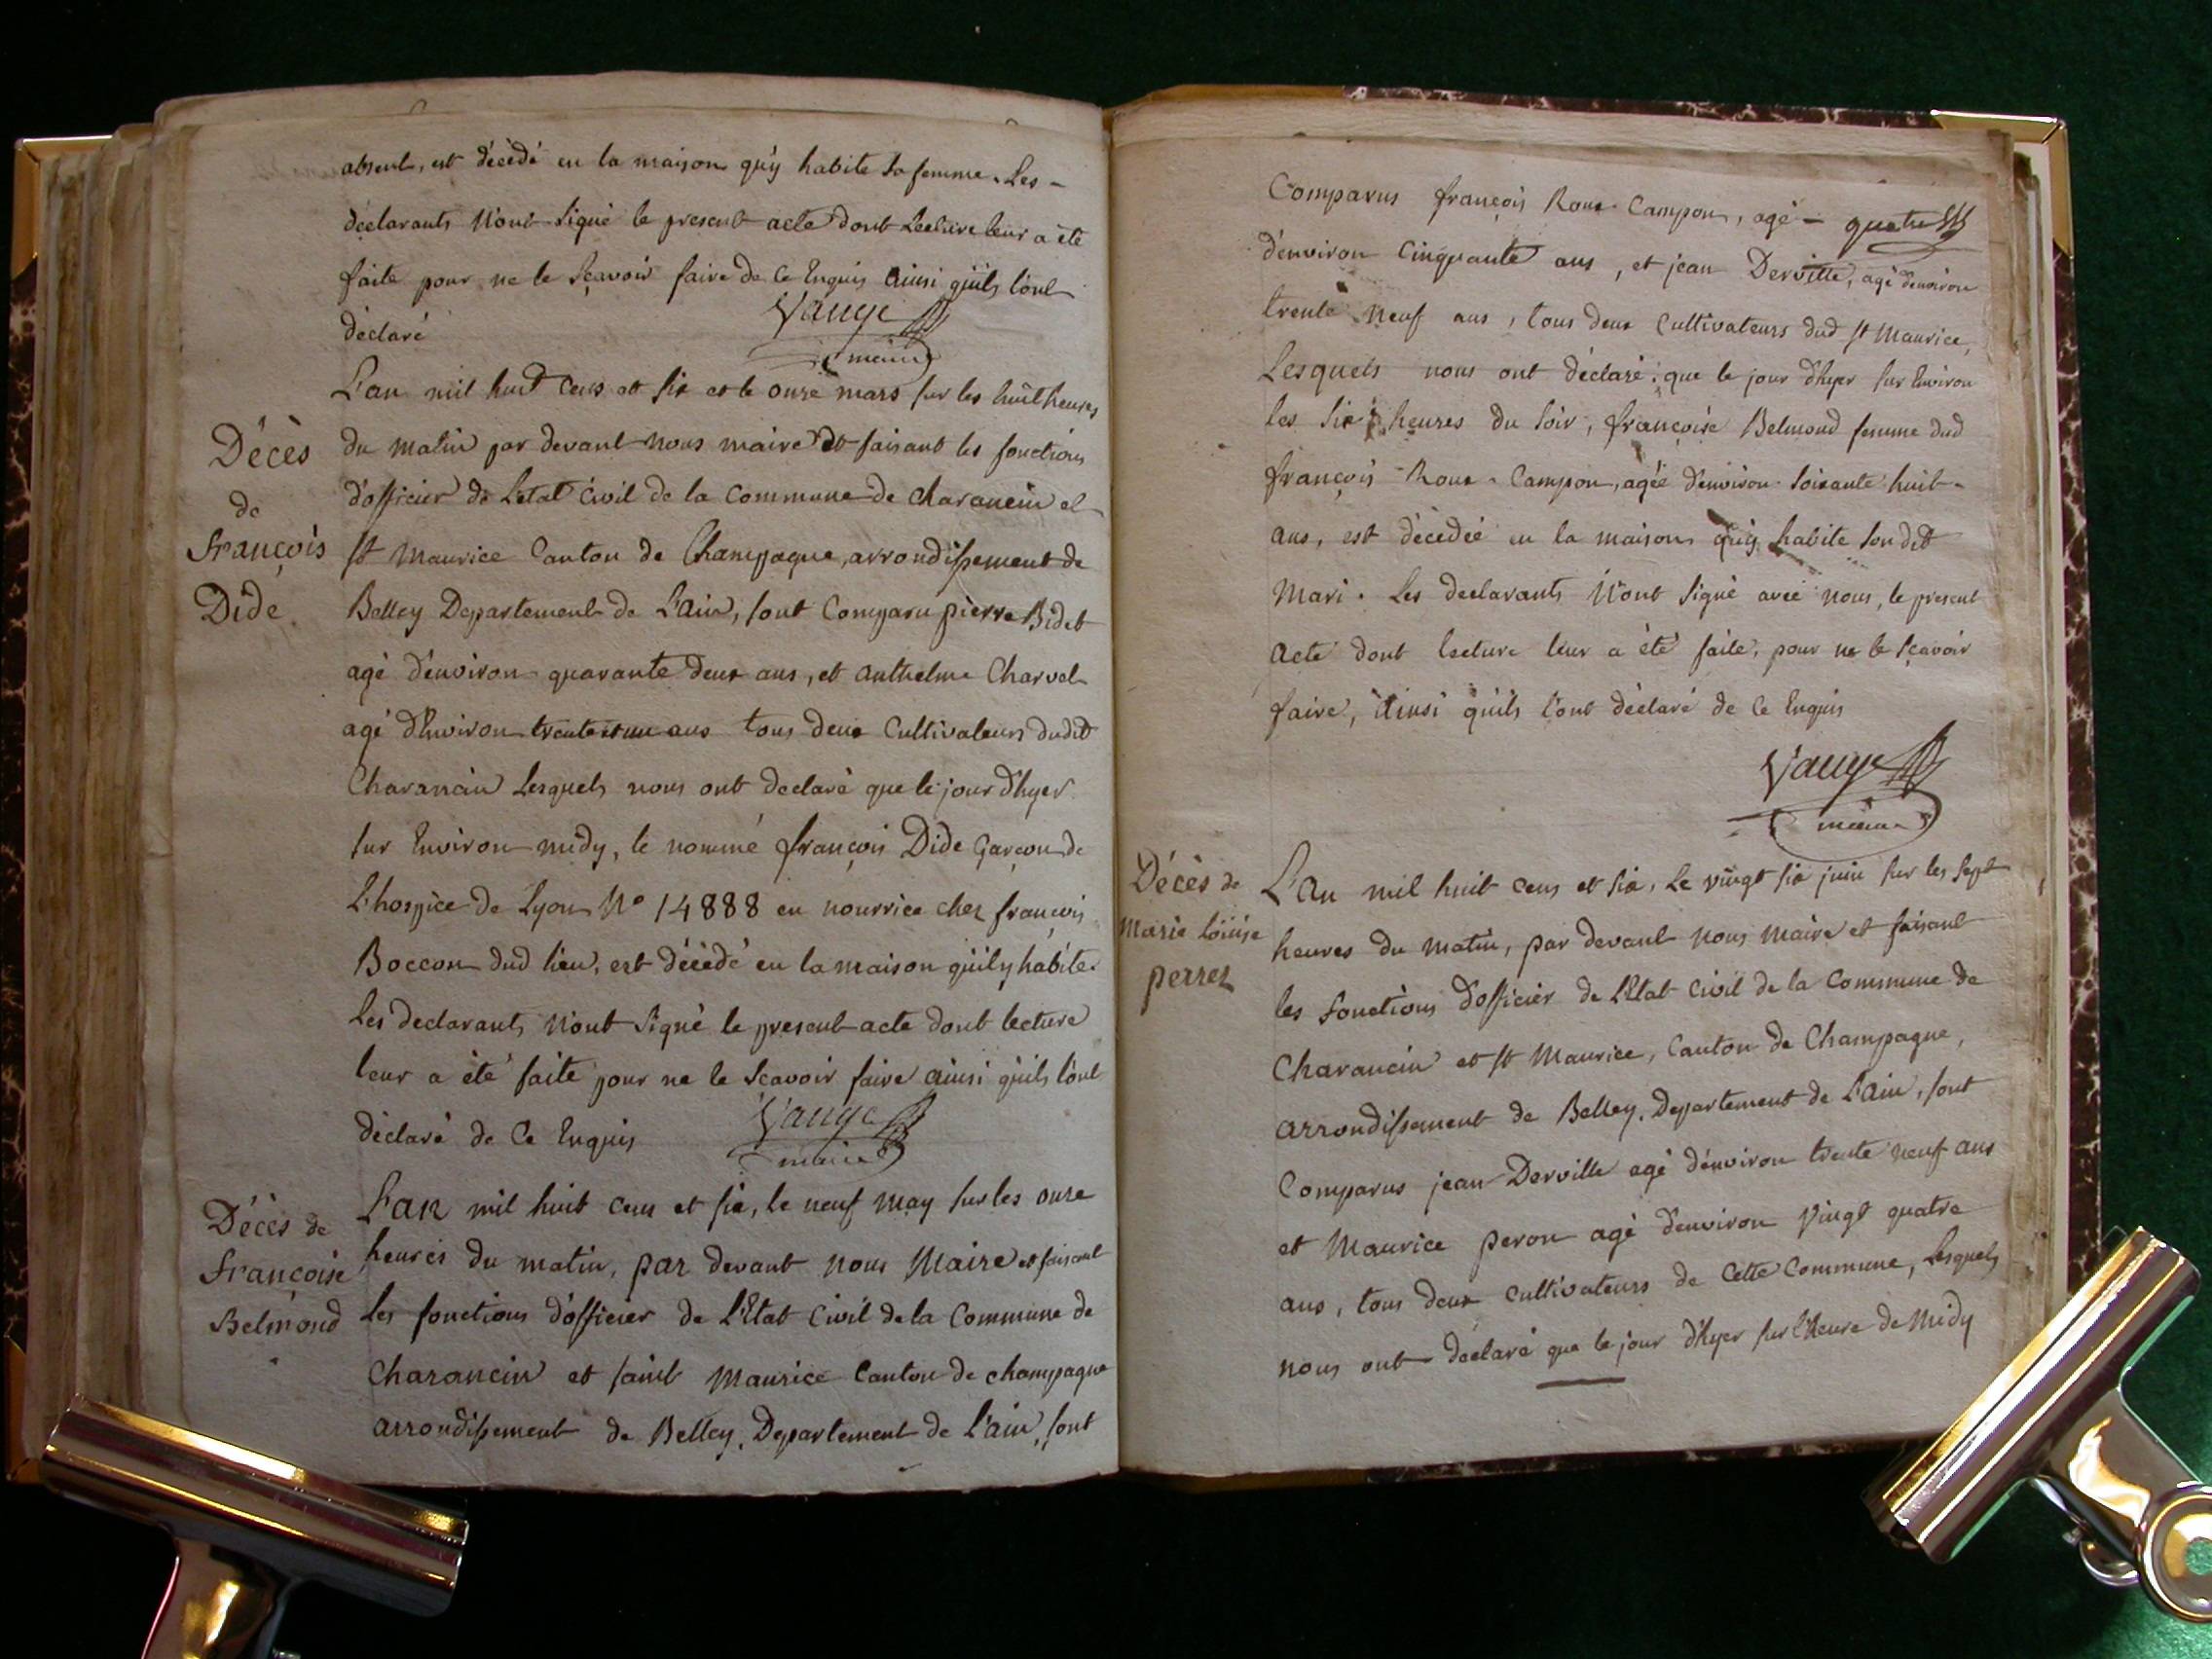 absent, est décédé en la maison qu'y habite sa femme. Les -
déclarants n'ont signé le present acte dont lecture leur a été
faite pour ne le sçavoir faire de ce enquis ainsi qu'ils l'ont
déclaré
Vauge
maire
L'an mil huit cens et six et le onze mars sur les huit heures
Décès
de
François
Dide
du matin par devant nous maire et faisant les fonctions
d'officier de L'etat civil de la Commune de Charancin et
st Maurice Canton de Champagne, arrondissement de
Belley Departement de L'ain, sont Comparu pierre Bidet
agé d'environ quarante deux ans, et anthelme Charvet
agé d'Environ trente et un ans tous deux Cultivateurs dudit
Charancin Lesquels nous ont declaré que le jour d'hyer
sur Environ midy, le nommé françois Dide Garçon de
L'hospice de Lyon N° 14888 en nourrice chez françois
Boccon dud lieu, est décédé en la maison qu'il y habite.
Les declarants n'ont signé le present acte dont lecture
leur a été faite pour ne le sçavoir faire ainsi qu'ils l'ont
déclaré de Ce Enquis
Vauge
maire
Décès de
Françoise
Belmond
L'an mil huit cens et six, le neuf may sur les onze
heures du matin, par devant nous Maire et faisant
les fonctions d'officier de L'Etat Civil de la Commune de
Charancin et saint Maurice Canton de champagne
arrondissement de Belley, Departement de L'ain, sont
quatre
Comparus françois Roux Campon, agé -
d'environ Cinquante ans, et jean Derville, agé d'environ
trente neuf ans, tous deux Cultivateurs dud st Maurice,
Lesquels nous ont déclaré que le jour d'hyer sur Environ
les six heures du soir, françoise Belmond femme dud
françois Roux-Campon, agée d'environ soixante huit-
ans, est décédée en la maison qu'y habite sondit
Mari. Les declarants n'ont signé avec nous, le present
acte dont lecture leur a été faite, pour ne le sçavoir
faire, ainsi qu'ils l'ont déclaré de Ce Enquis
Vauge
maire
Décès de
Marie loüise
perret
L'An mil huit cens et six, Le vingt six juin sur les sept
heures du matin, par devant nous maire et faisant
les fonctions d'officier de L'Etat Civil de la Commune de
Charancin et st Maurice, Canton de Champagne,
arrondissement de Belley, Departement de L'ain, sont
Comparus jean Derville agé d'environ trente neuf ans
et Maurice peron agé d'environ vingt quatre
ans, tous deux cultivateurs de Cette Commune, Lesquels
nous ont declaré que le jour d'hyer sur l'heure de Midy